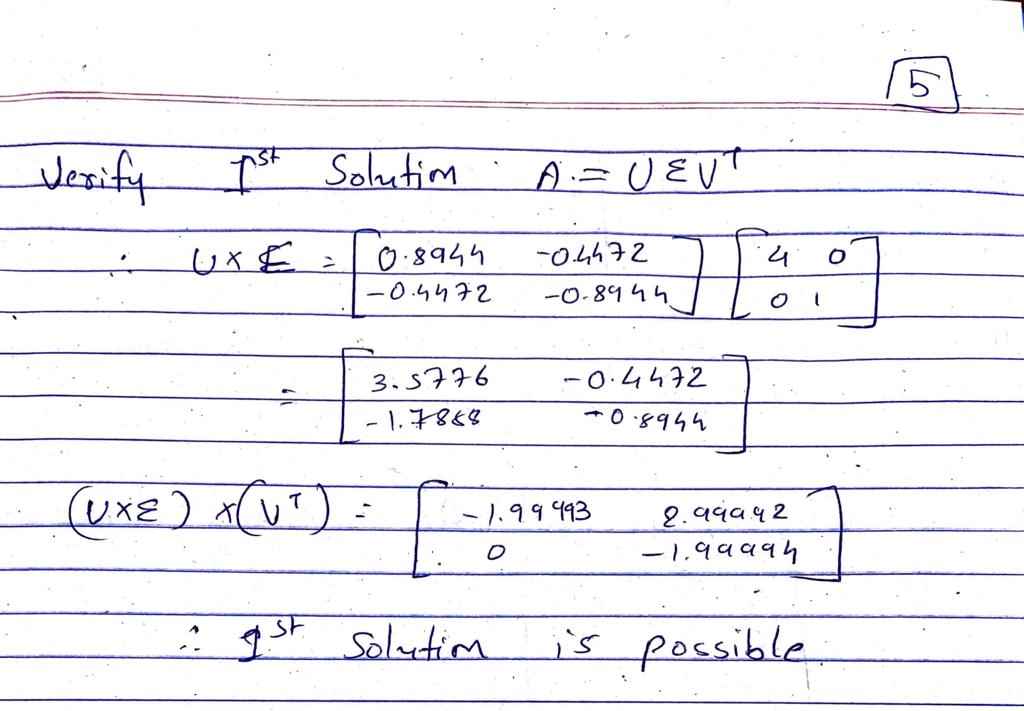 5
Verify 1st Solution A = UΣVᵀ
∴ U x Σ = [ 0.8944 -0.4472 ] [ 4 0 ]
[ -0.4472 -0.8944 ] [ 0 1 ]
= [ 3.5776 -0.4472 ]
[ -1.7888 -0.8944 ]
(U x Σ) x (Vᵀ) = [ -1.99993 2.99992 ]
[ 0 -1.99994 ]
∴ 1st Solution is possible